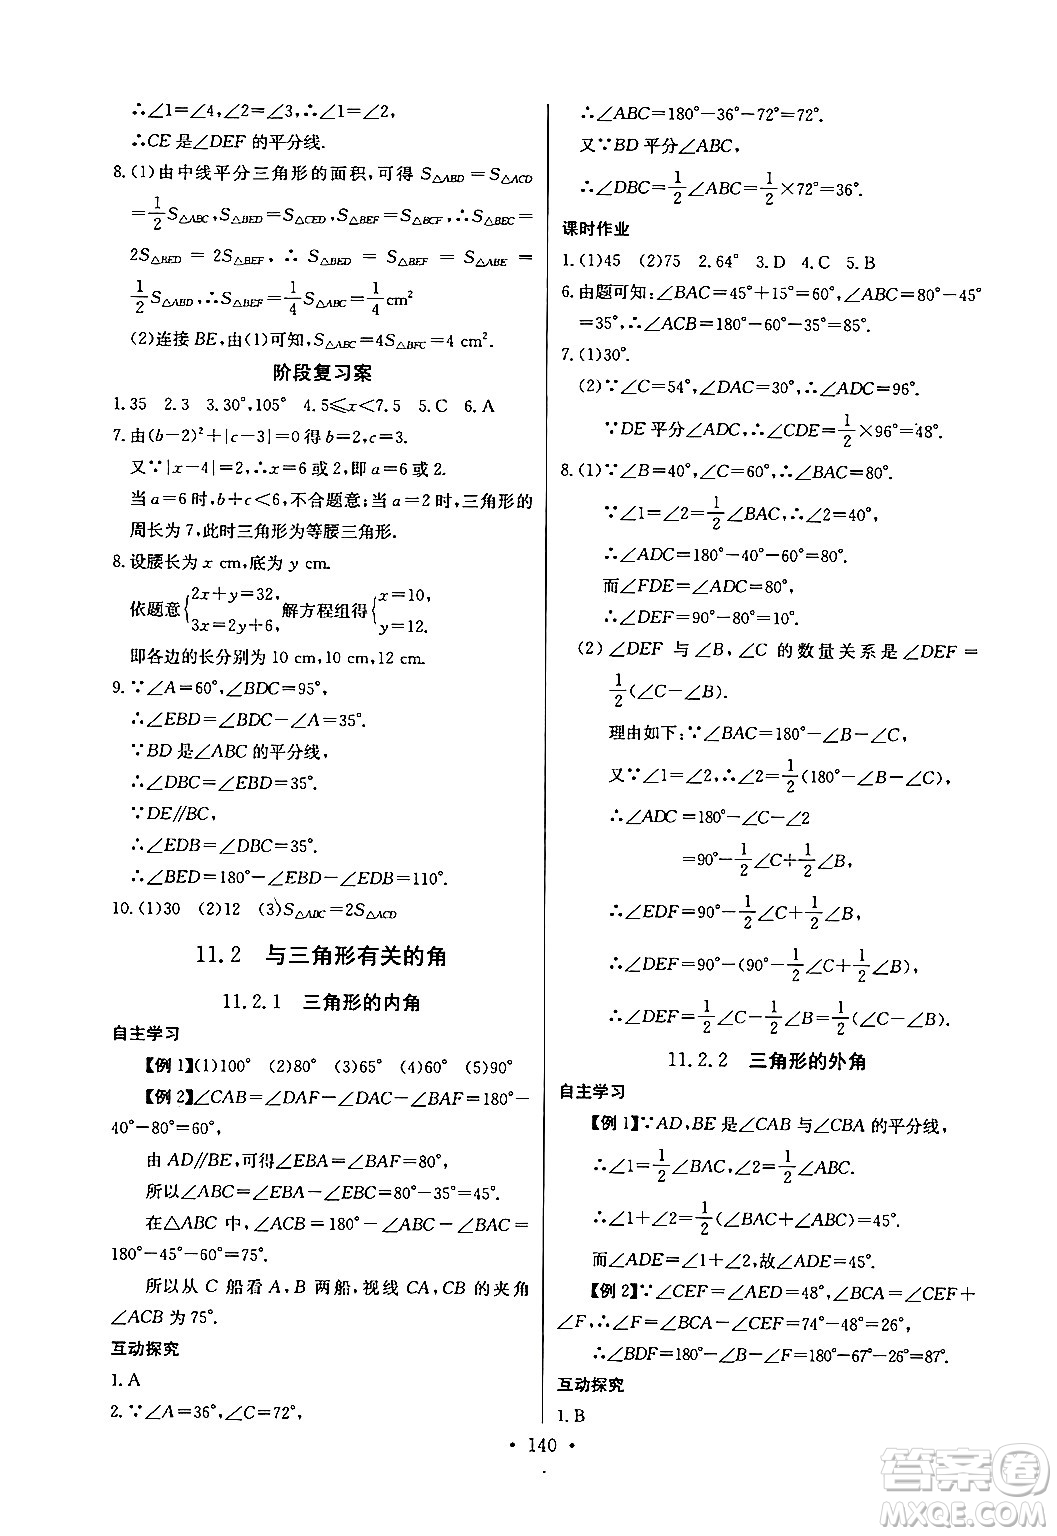 ∴∠1=∠4,∠2=∠3,∴∠1=∠2,
∴CE 是∠DEF 的平分线.
8.(1)由中线平分三角形的面积,可得 S△ABD=S△ACD
=1/2 S△ABC,S△BED=S△CED,S△BEF=S△BCF,∴S△BEC=
2S△BED=2S△BEF,∴ S△BED=S△BEF=S△ABE=
1/2 S△ABD,∴S△BEF=1/4 S△ABC=1/4 cm²
(2)连接 BE,由(1)可知,S△ABC=4S△BFC=4 cm².
阶段复习案
1.35 2.3 3.30°,105° 4.5≤x<7.5 5.C 6.A
7.由(b-2)²+|c-3|=0得 b=2,c=3.
又∵|x-4|=2,∴x=6 或 2,即 a=6 或 2.
当 a=6 时,b+c<6,不合题意;当 a=2 时,三角形的
周长为 7,此时三角形为等腰三角形.
8.设腰长为 x cm,底为 y cm.
依题意{2x+y=32, 3x=2y+6, 解方程组得{x=10, y=12.
即各边的长分别为 10 cm,10 cm,12 cm.
9.∵∠A=60°,∠BDC=95°,
∴∠EBD=∠BDC-∠A=35°.
∵BD 是∠ABC 的平分线,
∴∠DBC=∠EBD=35°.
∵DE∥BC,
∴∠EDB=∠DBC=35°.
∴∠BED=180°-∠EBD-∠EDB=110°.
10.(1)30 (2)12 (3)S△ADC=2S△ACD
11.2 与三角形有关的角
11.2.1 三角形的内角
自主学习
【例 1】(1)100° (2)80° (3)65° (4)60° (5)60°
【例 2】∠CAB=∠DAF-∠DAC-∠BAF=180°-
40°-80°=60°,
由 AD∥BE,可得∠EBA=∠BAF=80°,
所以∠ABC=∠EBA-∠EBC=80°-35°=45°.
在△ABC 中,∠ACB=180°-∠ABC-∠BAC=
180°-45°-60°=75°.
所以从 C 船看 A,B 两船,视线 CA,CB 的夹角
∠ACB 为 75°.
互动探究
1.A
2.∵∠A=36°,∠C=72°,
∴∠ABC=180°-36°-72°=72°.
又∵BD 平分∠ABC,
∴∠DBC=1/2∠ABC=1/2×72°=36°.
课时作业
1.(1)45 (2)75 2.64° 3.D 4.C 5.B
6.由题可知:∠BAC=45°+15°=60°,∠ABC=80°-45°
=35°,∴∠ACB=180°-60°-35°=85°.
7.(1)30°.
(2)∵∠C=54°,∠DAC=30°,∴∠ADC=96°.
∵DE 平分∠ADC,∴∠CDE=1/2×96°=48°.
8.(1)∵∠B=40°,∠C=60°,∴∠BAC=80°.
∵∠1=∠2=1/2∠BAC,∴∠2=40°,
∴∠ADC=180°-40°-60°=80°.
而∠FDE=∠ADC=80°,
∴∠DEF=90°-80°=10°.
(2)∠DEF 与∠B,∠C 的数量关系是∠DEF=
1/2(∠C-∠B).
理由如下:∵∠BAC=180°-∠B-∠C,
又∵∠1=∠2,∴∠2=1/2(180°-∠B-∠C),
∴∠ADC=180°-∠C-∠2
=90°-1/2∠C+1/2∠B,
∴∠EDF=90°-1/2∠C+1/2∠B,
∴∠DEF=90°-(90°-1/2∠C+1/2∠B),
∴∠DEF=1/2∠C-1/2∠B=1/2(∠C-∠B).
11.2.2 三角形的外角
自主学习
【例 1】∵AD,BE 是∠CAB 与∠CBA 的平分线,
∴∠1=1/2∠BAC,∠2=1/2∠ABC.
∴∠1+∠2=1/2(∠BAC+∠ABC)=45°.
而∠ADE=∠1+∠2,故∠ADE=45°.
【例 2】∵∠CEF=∠AED=48°,∠BCA=∠CEF+
∠F,∴∠F=∠BCA-∠CEF=74°-48°=26°,
∴∠BDF=180°-∠B-∠F=180°-67°-26°=87°.
互动探究
1.B
• 140 •
答案圈
MXQE.COM